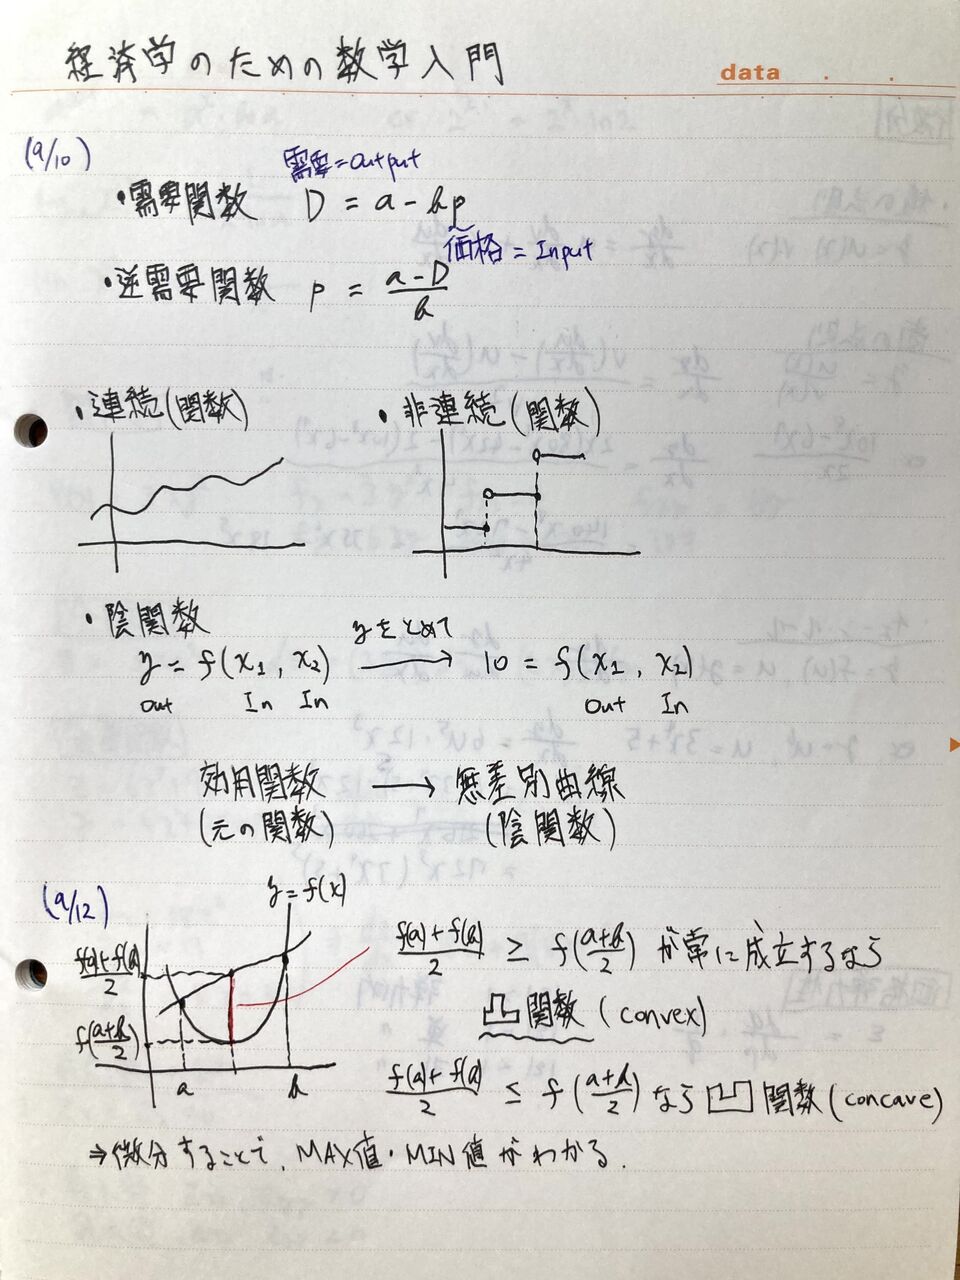 経済学のための数学入門
data . .
(9/10)
需要=output
・需要関数 D = a - bp
価格 = Input
・逆需要関数 p = (a-D)/b
・連続(関数) ・非連続(関数)
・陰関数 yをとめて
y = f(x₁, x₂) → 10 = f(x₁, x₂)
out In In out In
効用関数 → 無差別曲線
(元の関数) (陰関数)
(9/12)
y=f(x)
(f(a)+f(b))/2
f((a+b)/2)
a b
(f(a)+f(b))/2 ≥ f((a+b)/2) が常に成立するなら
凸関数 (convex)
(f(a)+f(b))/2 ≤ f((a+b)/2) なら 凹関数 (concave)
⇒微分することで、MAX値・MIN値がわかる.